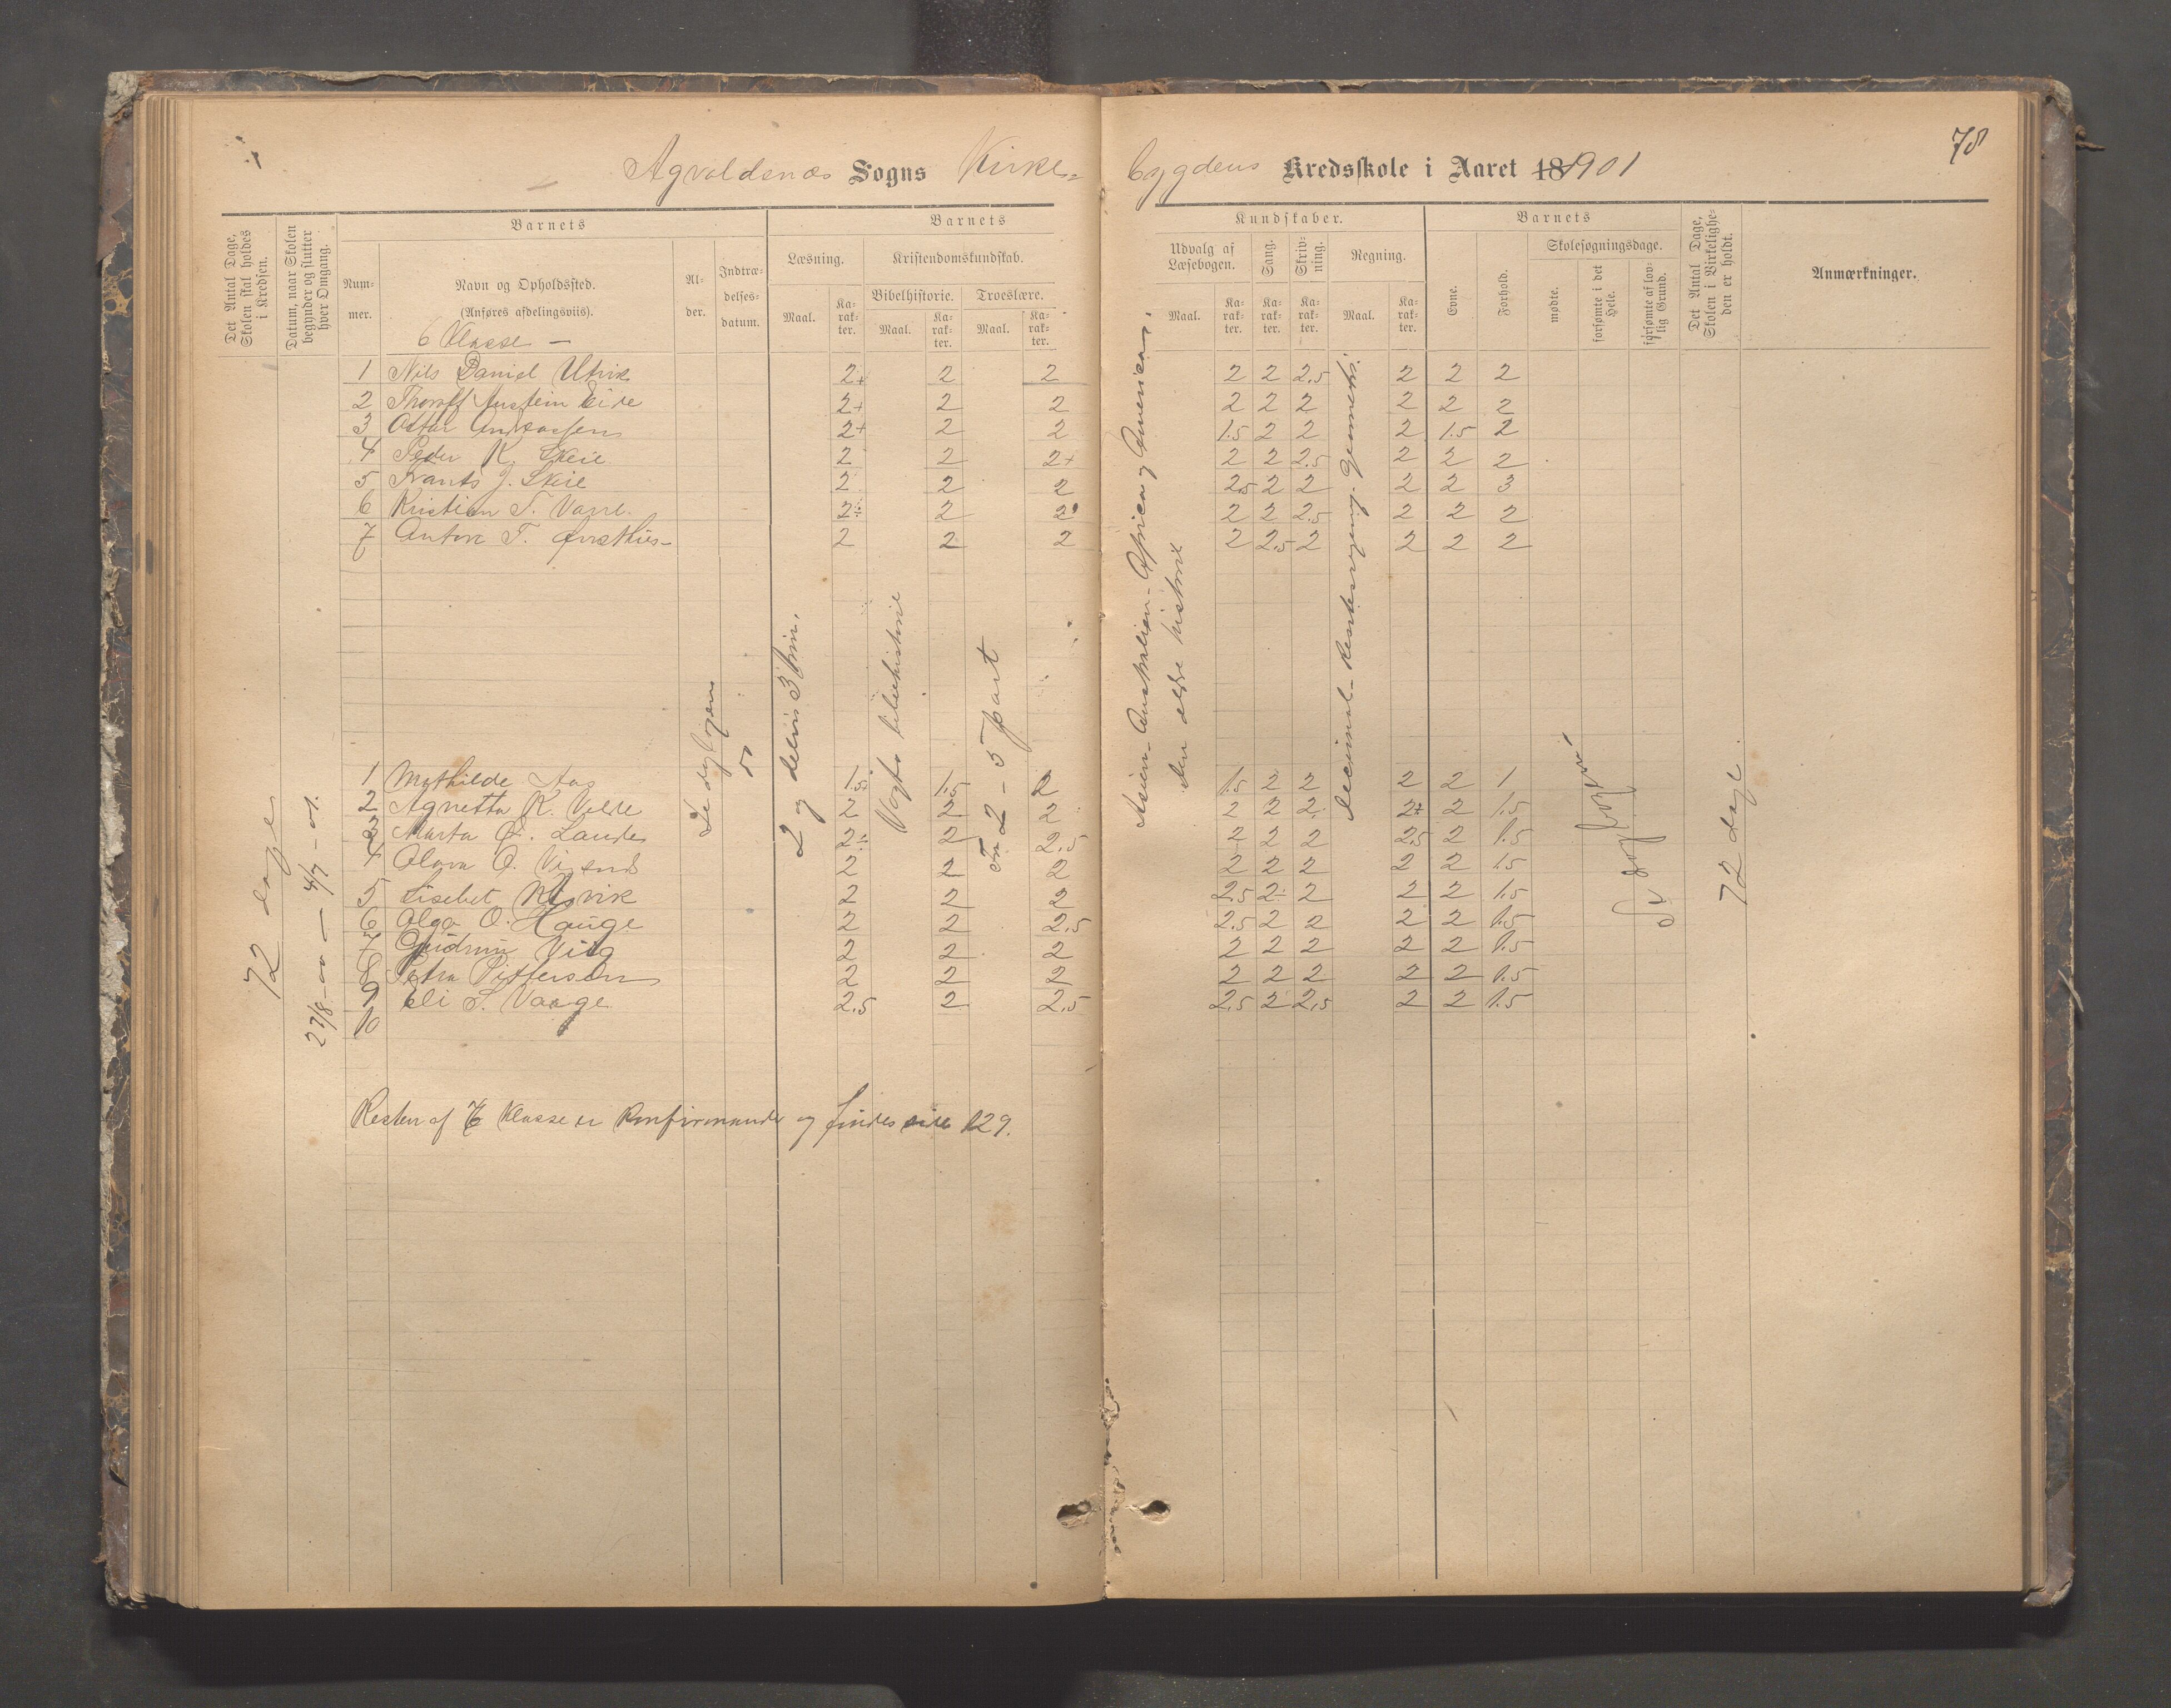 78
Agvaldsnæs Sogns Kirke=
bygdens Kredsskole i Aaret 18 1901
Det Antal Dage, Skolen skal holdes i Kredsen.
Datum, naar Skolen begynder og slutter hver Omgang.
Barnets
Num-mer.
Navn og Opholdssted.
(Anføres afdelingsviis).
Al-der.
Indtræ-delses-datum.
Barnets
Læsning.
Maal.
Ka-rak-ter.
Kristendomskundskab.
Bibelhistorie.
Maal.
Ka-rak-ter.
Troeslære.
Maal.
Ka-rak-ter.
Kundskaber.
Udvalg af Læsebogen.
Maal.
Ka-rak-ter.
Sang.
Ka-rak-ter.
Skriv-ning.
Ka-rak-ter.
Regning.
Maal.
Ka-rak-ter.
Barnets
Evne.
Forhold.
Skolesøgningsdage.
mødte.
forsømte i det Hele.
forsømte af lov-lig Grund.
Det Antal Dage, Skolen i Virkelighe-den er holdt.
Anmærkninger.
6 Klasse —
1 Nils Daniel Utvik 2+ 2 2 2 2 2,5 2 2 2
2 Thoralf Austein Eide 2+ 2 2 2 2 2 2 2 2
3 Oskar Andreassen 2+ 2 2 1.5 2 2 2 1.5 2
4 Peder K. Skeie 2 2 2+ 2 2 2.5 2 2 2
5 Frants J. Skeie 2 2 2 2.5 2 2 2 2 3
6 Kristian T. 2÷ 2 2 2 2 2.5 2 2 2
7 Anton T. 2 2 2 2 2.5 2 2 2 2
72 dage
27/8 - 00 — 4/7 - 01.
Se dagbogen
do
2 og delvis 3 trin.
Vogts bibelhistorie
Fra 2 - 5 part
Asien - Australien - Afrika og Amerika.
Den eldre historie
Decimal - Rentesregning. Geometri.
Se dagbogen
72 dage.
1 Mathilde Aas 1.5 1.5 2 1.5 2 2 2 2 1
2 Agnetha K. 2 2 2 2 2 2 2+ 2 1.5
3 Marta O. Lande 2÷ 2 2.5 2 2 2 2.5 2 1.5
4 Olava O. 2 2 2 2 2 2 2 2 1.5
5 Lisebet Utvik 2 2 2 2.5 2÷ 2 2 2 1.5
6 Olga O. Hauge 2 2 2.5 2.5 2 2 2 2 1.5
7 Gudrun 2 2 2 2 2 2 2 2 1.5
8 Petra Pettersen 2 2 2 2 2 2 2 2 1.5
9 Eli S. Vaage 2.5 2 2.5 2.5 2 2.5 2 2 1.5
10
Resten af Klasse er Konfirmander og findes side 129.